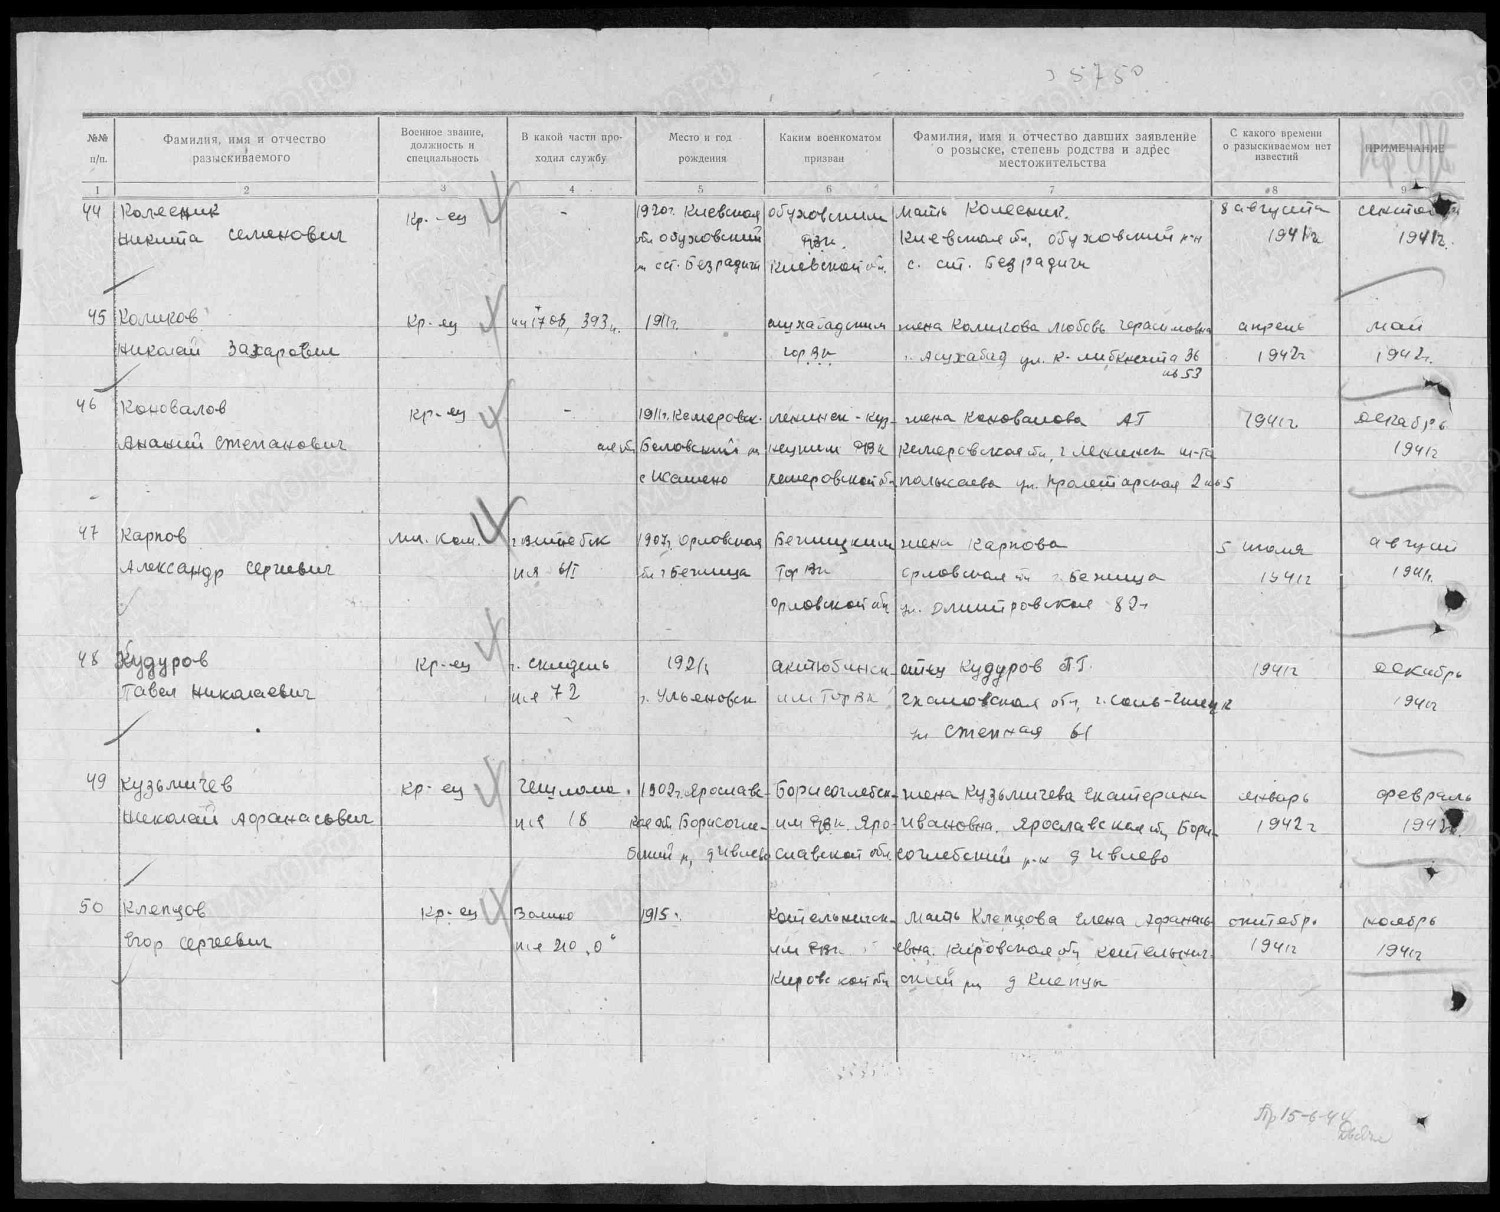 5750
№№ п/п.
Фамилия, имя и отчество разыскиваемого
Военное звание, должность и специальность
В какой части проходил службу
Место и год рождения
Каким военкоматом призван
Фамилия, имя и отчество давших заявление о розыске, степень родства и адрес местожительства
С какого времени о разыскиваемом нет известий
ПРИМЕЧАНИЕ
1 2 3 4 5 6 7 8 9
44 Колесник Кр-ец - 1920г. Киевская обуховским мать Колесник. 8 августа
Никита Семенович обл обуховский РВК. Киевская обл, обуховский р-н 1941г 1941г.
с. ст. Безрадичи Киевской обл. с. ст. Безрадичи
45 Коликов Кр-ец 393 1911г. ашхабадским жена Коликова Любовь Герасимовна апрель май
Николай Захарович гор ВК г. Ашхабад ул. К-Либкнехта 36 1942г 1942г.
кв 53
46 Коновалов Кр-ец - 1911г. Кемеровск- Ленинск-Куз- жена Коновалова АГ 1941г декабрь
Ананий Степанович ая обл Беловский нецким РВК Кемеровская обл, г Ленинск 1941г
с Кемеровской обл ул. Пролетарская 2 кв 5
47 Карпов мл. ком. г. Витебск 1907г. Орловская Бежицким жена Карпова 5 июля август
Александр Сергеевич п/я 6/I обл г Бежица Гор ВК Орловская обл г. Бежица 1941г 1941г.
Орловской обл ул. Дмитровская 82
48 Кудуров Кр-ец г. Скидель 1921г актюбинск- отец Кудуров П.Г. 1941г декабрь
Павел Николаевич п/я 72 г. Ульяновск им Гор ВК Чкаловская обл, г. Соль-Илецк 1941г
ул Степная 61
49 Кузьмичев Кр-ец 1902г. Ярославс- Борисоглебск- жена Кузьмичева Екатерина январь февраль
Николай Афанасьевич п/я 18 кая обл Борисогле- им РВК Яро- Ивановна, Ярославская обл Бори- 1942г 1942г.
бский р, д Ивлево славской обл соглебский р-н д Ивлево
50 Клепцов Кр-ец 1915г. Котельнич- мать Клепцова Елена Афанась- октябрь ноябрь
Егор Сергеевич п/я 210 им РВК евна. Кировская обл Котельнич- 1941г 1941г
Кировской обл ский рн д Клепцы
15-6-44